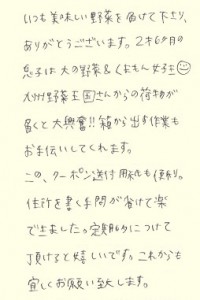 いつも美味しい野菜を届けて下さり、
ありがとうございます。2才6ヶ月の
息子は大の野菜&くまモン好き
九州野菜王国さんからの荷物が
届くと大興奮!!箱から出す作業も
お手伝いしてくれます。
この、クーポン送付用紙も便利。
住所を書く手間が省けて楽
できました。定期的につけて
頂けると嬉しいです。これからも
宜しくお願い致します。